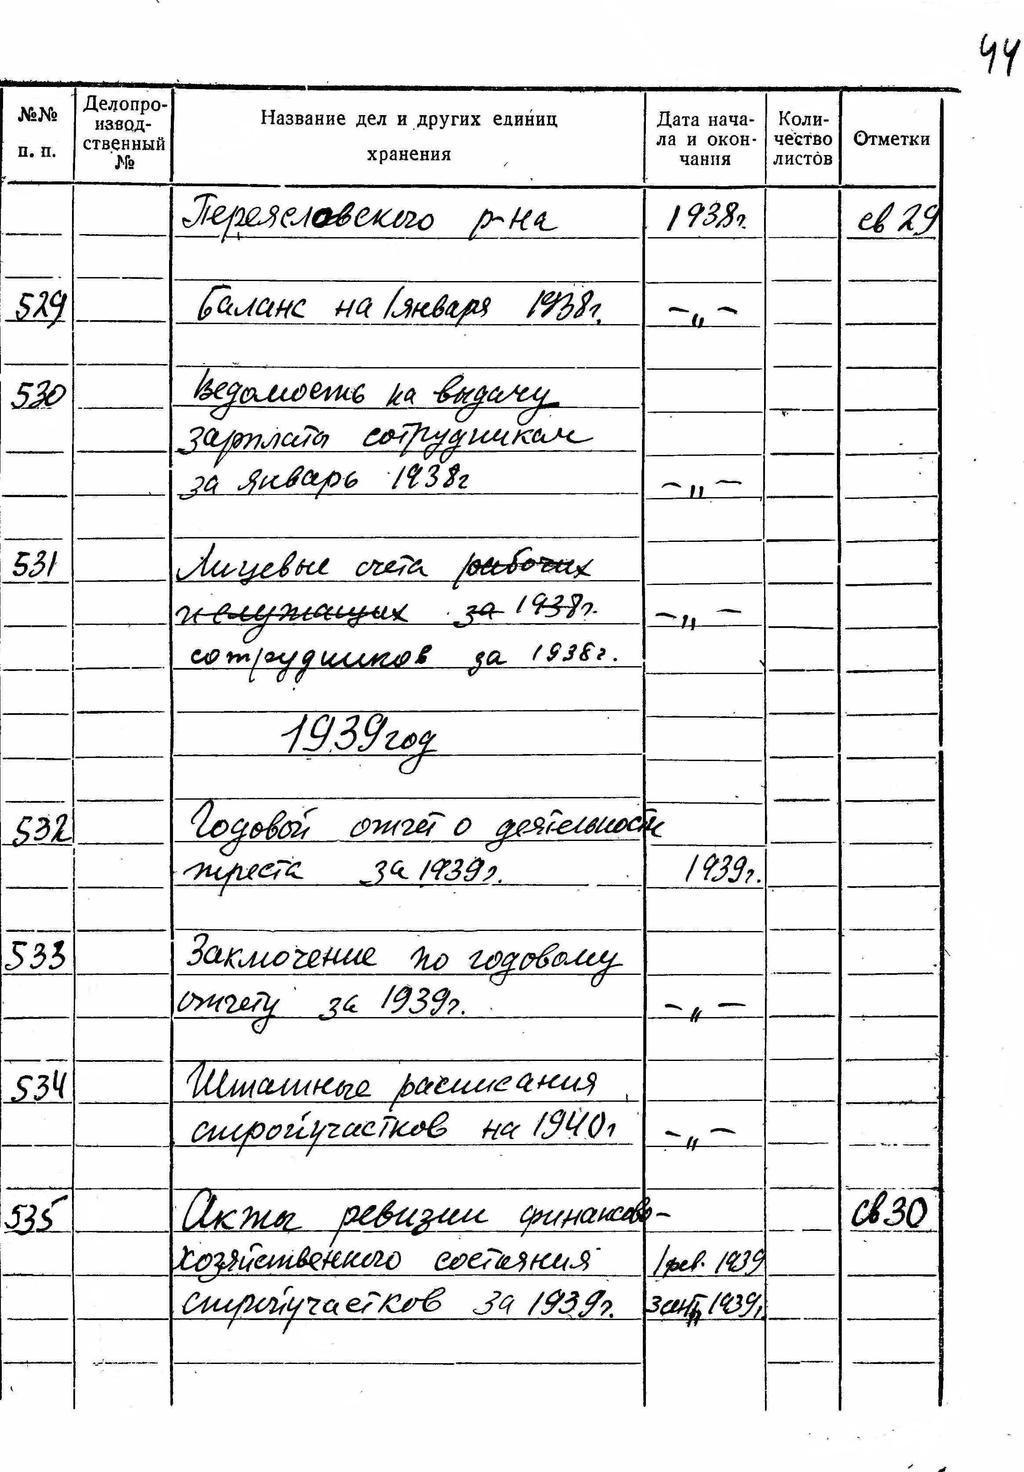 44
№№ п. п. Делопроизводственный № Название дел и других единиц хранения Дата начала и окончания Количество листов Отметки
Переясловского р-на 1938г. св 29
529 Баланс на 1 января 1938г. -„-
530 Ведомость на выдачу
зарплаты сотрудникам
за январь 1938г -„-
531 Лицевые счета рабочих
и служащих за 1938г. -„-
сотрудников за 1938г.
1939 год
532 Годовой отчет о деятельности
треста за 1939г. 1939г.
533 Заключение по годовому
отчету за 1939г. -„-
534 Штатные расписания
стройучастков на 1940г -„-
535 Акты ревизии финансово- св 30
хозяйственного состояния 1 фев. 1939
стройучастков за 1939г. 1939г.